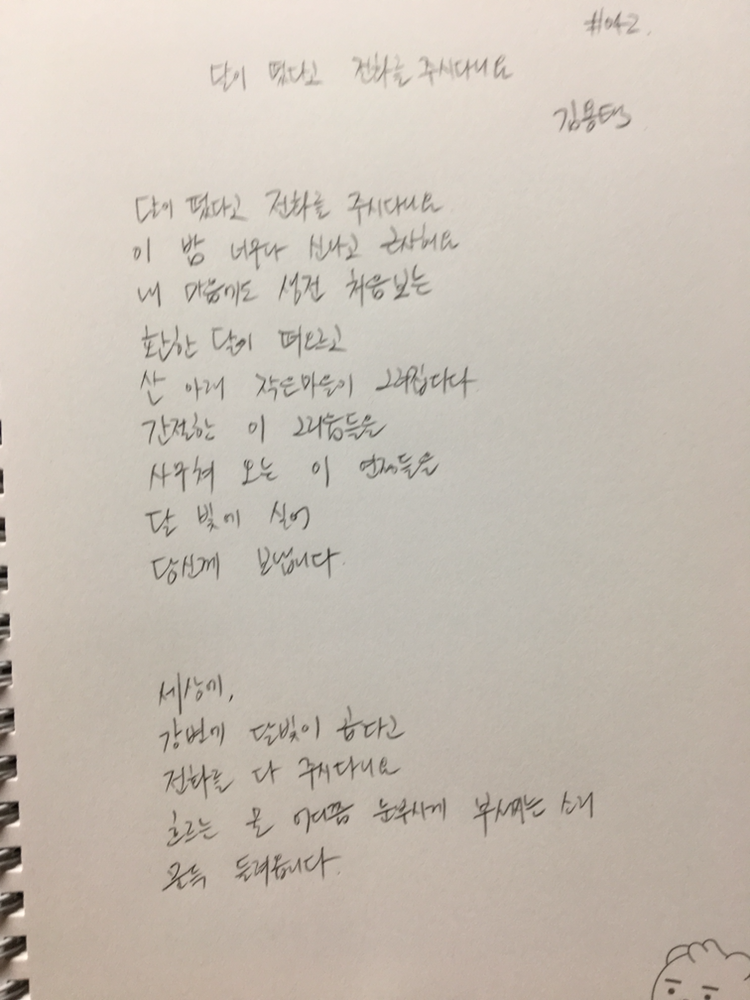 #042.
달이 떴다고 전화를 주시다니요
김용택
달이 떴다고 전화를 주시다니요
이 밤 너무나 신나고 근사해요
내 마음에도 생전 처음보는
환한 달이 떠오르고
산 아래 작은마을이 그려집니다
간절한 이 그리움들을
사무쳐 오는 이 연정들을
달 빛에 실어
당신께 보냅니다.
세상에,
강변에 달빛이 곱다고
전화를 다 주시다니요
흐르는 물 어디쯤 눈부시게 부서지는 소리
문득 들려옵니다.